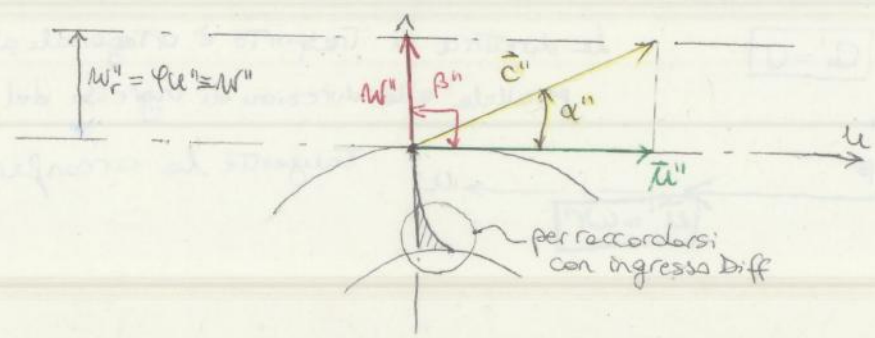 w"r = φu" ≅ w"
w"
β"
c"
α"
u
u"
per raccordarsi
con ingresso Diff